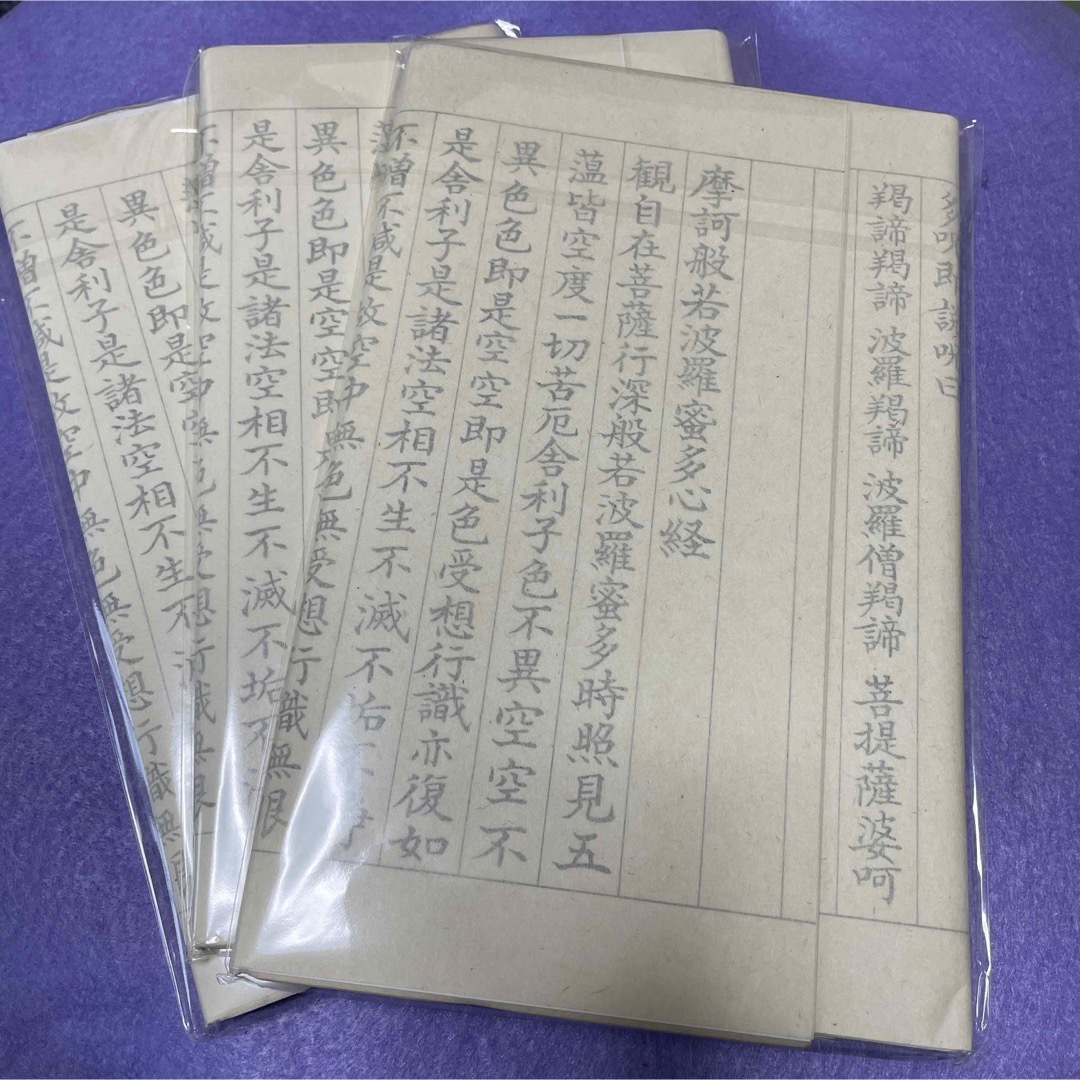 摩訶般若波羅蜜多心経
観自在菩薩行深般若波羅蜜多時照見五
蘊皆空度一切苦厄舎利子色不異空空不
異色色即是空空即是色受想行識亦復如
是舎利子是諸法空相不生不滅不垢不
不増不減是故空中無色無受想行識無限
多呪即説呪曰
羯諦羯諦 波羅羯諦 波羅僧羯諦 菩提薩婆呵
異色色即是空空即
是舎利子是諸法空相不生不滅不垢不
不増不減是故空中無色無受想行識無
異色色即是空
是舎利子是諸法空相不生不
不増不減是故空中無色無受想行識無